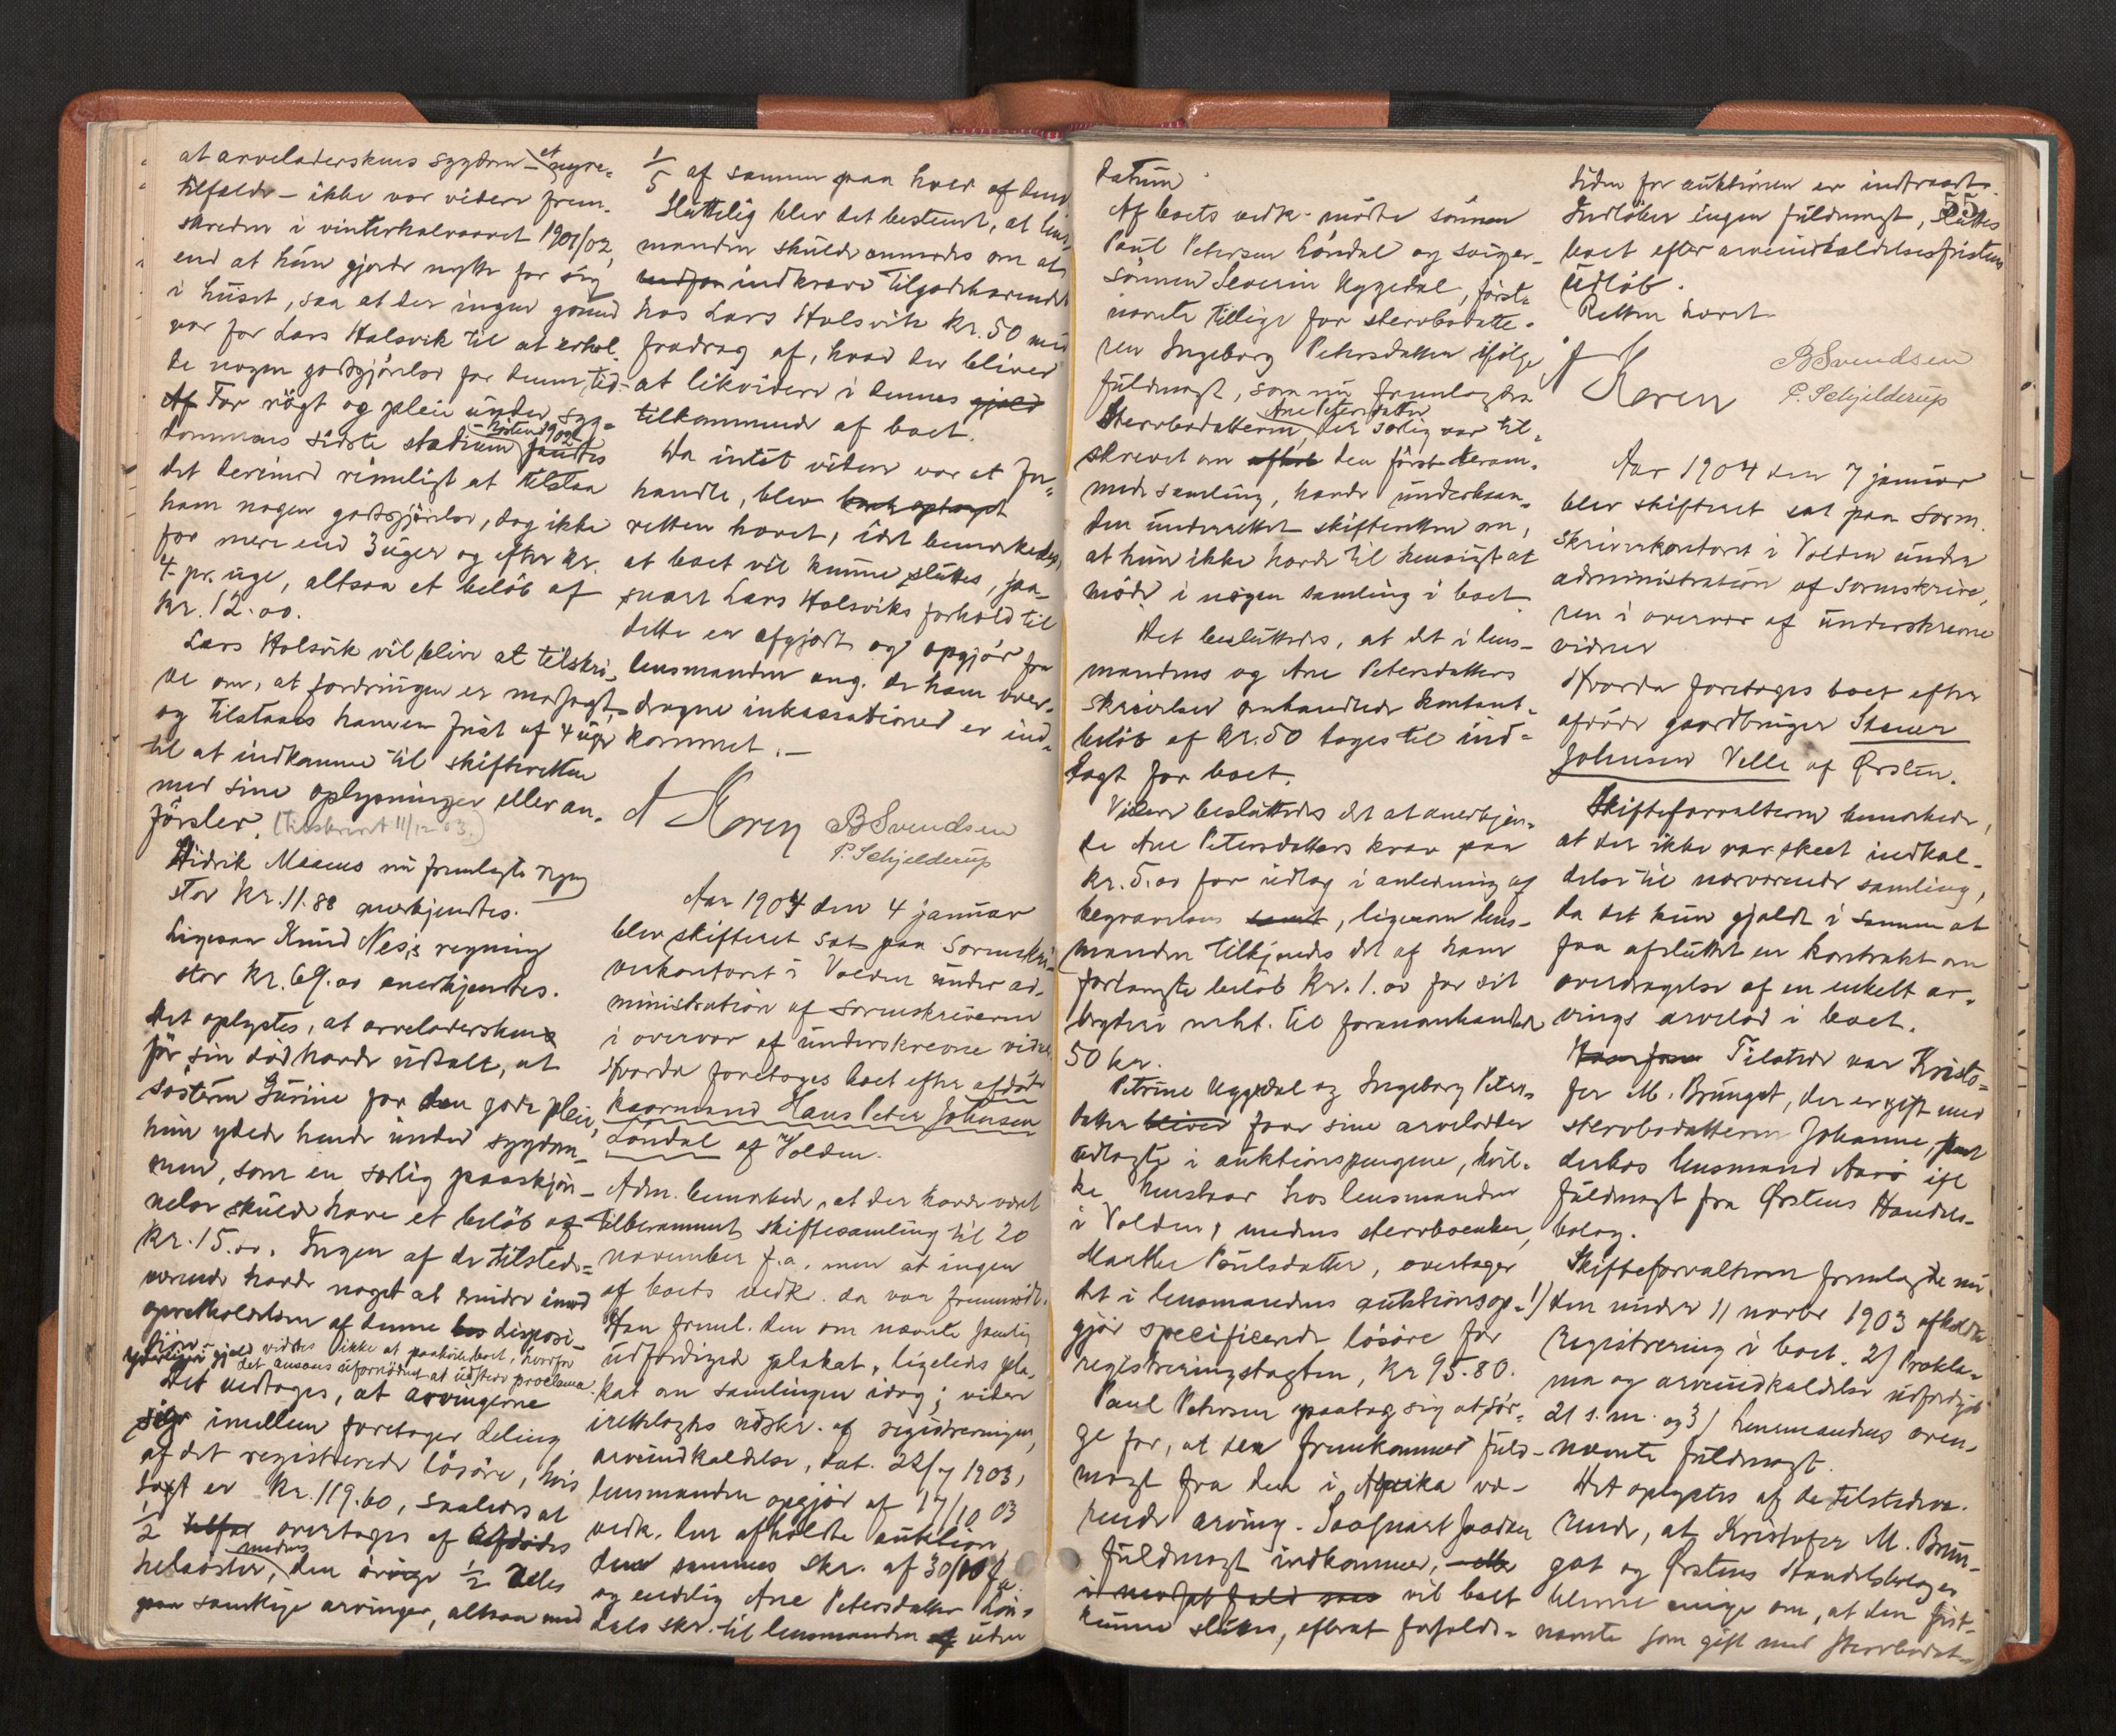 at arveladerskens sygdom – et nyre-
tilfælde – ikke var videre frem-
skreden i vinterhalvaaret 1901/02,
end at hun gjorde nytte for sig
i huset, saa at der ingen grund
var for Lars Halsvik til at erhol-
de nogen godtgjörelse for denne tid.
Af For rögt og pleie under syg-
dommens sidste stadium höstend 1902 fandtes
det derimod rimeligt at tilstaa
ham nogen godtgjörelse, dog ikke
for mere end 3 uger og efter kr.
4 pr. uge, altsaa et belöb af
kr. 12.00.
Lars Halsvik vil blive at tilskri-
ve om, at fordringen er modsagt,
og tilstaaes ham en frist af 4 uger
til at indkomme til skifteretten
med sine oplysninger eller an-
försler. (Tilskrevet 11/12 03.)
Didrik Maaens nu fremlagte regng
stor kr. 11.88 anerkjendtes.
Ligesaa Knud Nes's regning
stor kr. 69.00 anerkjendtes.
Det oplystes, at arveladersken
för sin död havde udtalt, at
söstern Gurine for den gode pleie,
hun ydede hende under sygdom-
men, som en særlig paaskjön-
nelse skulde have et belöb af
kr. 15.00. Ingen af de tilstede-
værende havde noget at erindre imod
opretholdelsen af denne disposi-
tion. Yderligere gjeld vidstes ikke at paahvile boet, hvorfor
det ansaaes ufornödent at udstede proclama.
Det vedtoges, at arvingerne
sig imellem foretager deling
af det registrerede lösöre, hvis
tagt er kr. 119.60, saaledes at
1/2 overtages af afdödes
helsöster, medens den övrige 1/2 deles
paa samtlige arvinger, altsaa med
1/5 af samme paa hver af dem.
Sluttelig blev det bestemt, at lens-
manden skulde anmodes om at
indkræve tilgodehavendet
hos Lars Halsvik kr. 50 med
fradrag af, hvad der bliver
at likvidere i dennes gjeld
tilkommende af boet.
Da intet videre var at for-
handle, blev
retten hævet, idet bemærkedes,
at boet vil kunne sluttes, saa-
snart Lars Halsviks forhold til
dette er afgjort og opgjör fra
lensmanden ang. de ham over-
dragne inkassationer er ind-
kommet. –
A Koren BSvendsen
P. Schjelderup
Aar 1904 den 4 januar
blev skifteret sat paa sorenskri-
verkontoret i Volden under ad-
ministration af sorenskriveren
i overvær af underskrevne vidner
Hvorda foretoges boet efter afdöde
kaarmand Hans Peter Johnsen
Löndal af Volden.
Adm. bemærkede, at der havde været
tilberammet skiftesamling til 20
november f.a., men at ingen
af boets vedk. da var fremmödt.
Han freml. den om nævnte samling
udfærdiged plakat, ligeledes pla-
kat om samlingen idag; videre
irettelagdes udskr. af registreringen,
arveindkaldelse, dat. 22/7 1903,
lensmandens opgjör af 17/10 03
vedk. den afholdte auktion,
dennes skr. af 30/10 f.a.
og endelig Ane Petersdatter Lön-
dals skr. til lensmanden uden
datum.
Af boets vedk. mödte sönnen
Paul Petersen Löndal og sviger-
sönnen Severin Uggedal, först-
nævnte tillige for stervbodatte-
ren Ingeborg Petersdatter ifölge
fuldmagt, som nu fremlagdes.
Stervbodatteren Ane Petersdatter, der særlig var til-
skrevet om den först beram-
mede samling, havde underhaan-
den underrettet skifteretten om,
at hun ikke havde til hensigt at
möde i nogen samling i boet.
Det besluttedes, at det i lens-
mandens og Ane Petersdatters
skrivelser omhandlede kontant-
belöb af kr. 50 tages til ind-
tægt for boet.
Videre besluttedes det at anerkjen-
de Ane Petersdatters krav paa
kr. 5.00 for udlæg i anledning af
begravelsen samt, ligesom lens-
manden tilkjendes det af ham
forlangte belöb kr. 1.00 for sit
bryderi m.h.t. til foranomhandlede
50 kr.
Petrine Uggedal og Ingeborg Peters-
datter bliver faar sine arvelodder
udlagte i auktionspengene, hvil-
ke henstaar hos lensmanden
i Volden, medens stervboenken,
Marthe Poulsdatter, overtager
det i lensmandens auktionsop-
gjör specificerede lösöre for
registreringstagten, kr 95.80.
Paul Petersen paatog sig at sör-
ge for, at der fremkommer fuld-
magt fra den i Afrika væ-
rende arving. Saasnart saadan
fuldmagt indkommer,
vil boet
kunne sluttes, efterat forfalds-
55
tiden for auktionen er indtraadt.
Indlöber ingen fuldmagt, sluttes
boet efter arveindkaldelsesfristens
udlöb.
Retten hævet.
A Koren BSvendsen
P. Schjelderup
Aar 1904 den 7 januar
blev skifteret sat paa soren-
skriverkontoret i Volden under
administration af sorenskrive-
ren i overvær af underskrevne
vidner
Hvorda foretoges boet efter
afdöde gaardbruger Stener
Johnsen Velle af Örsten.
Skifteforvalteren bemærkede,
at der ikke var skeet indkal-
delse til nærværende samling,
da det kun gjaldt i samme at
faa afsluttet en kontrakt om
overdragelse af en enkelt ar-
vings arvelod i boet.
Tilstede var Kristo-
fer M. Brungot, der er gift med
stervbodatteren Johanne, samt
derhos lensmand Aarö ifl
fuldmagt fra Örstens Handels-
bolag.
Skifteforvalteren fremlagde nu
1) den under 11 novbr 1903 afholdte
registrering i boet. 2) Prokla-
ma og arveindkaldelse udfærdiget
21 s.m. og 3) lensmandens oven-
nævnte fuldmagt.
Det oplystes af de tilstedevæ-
rende, at Kristofer M. Brun-
got og Örstens Handelsbolag er
blevne enige om, at den först-
nævnte som gift med stervbodat-